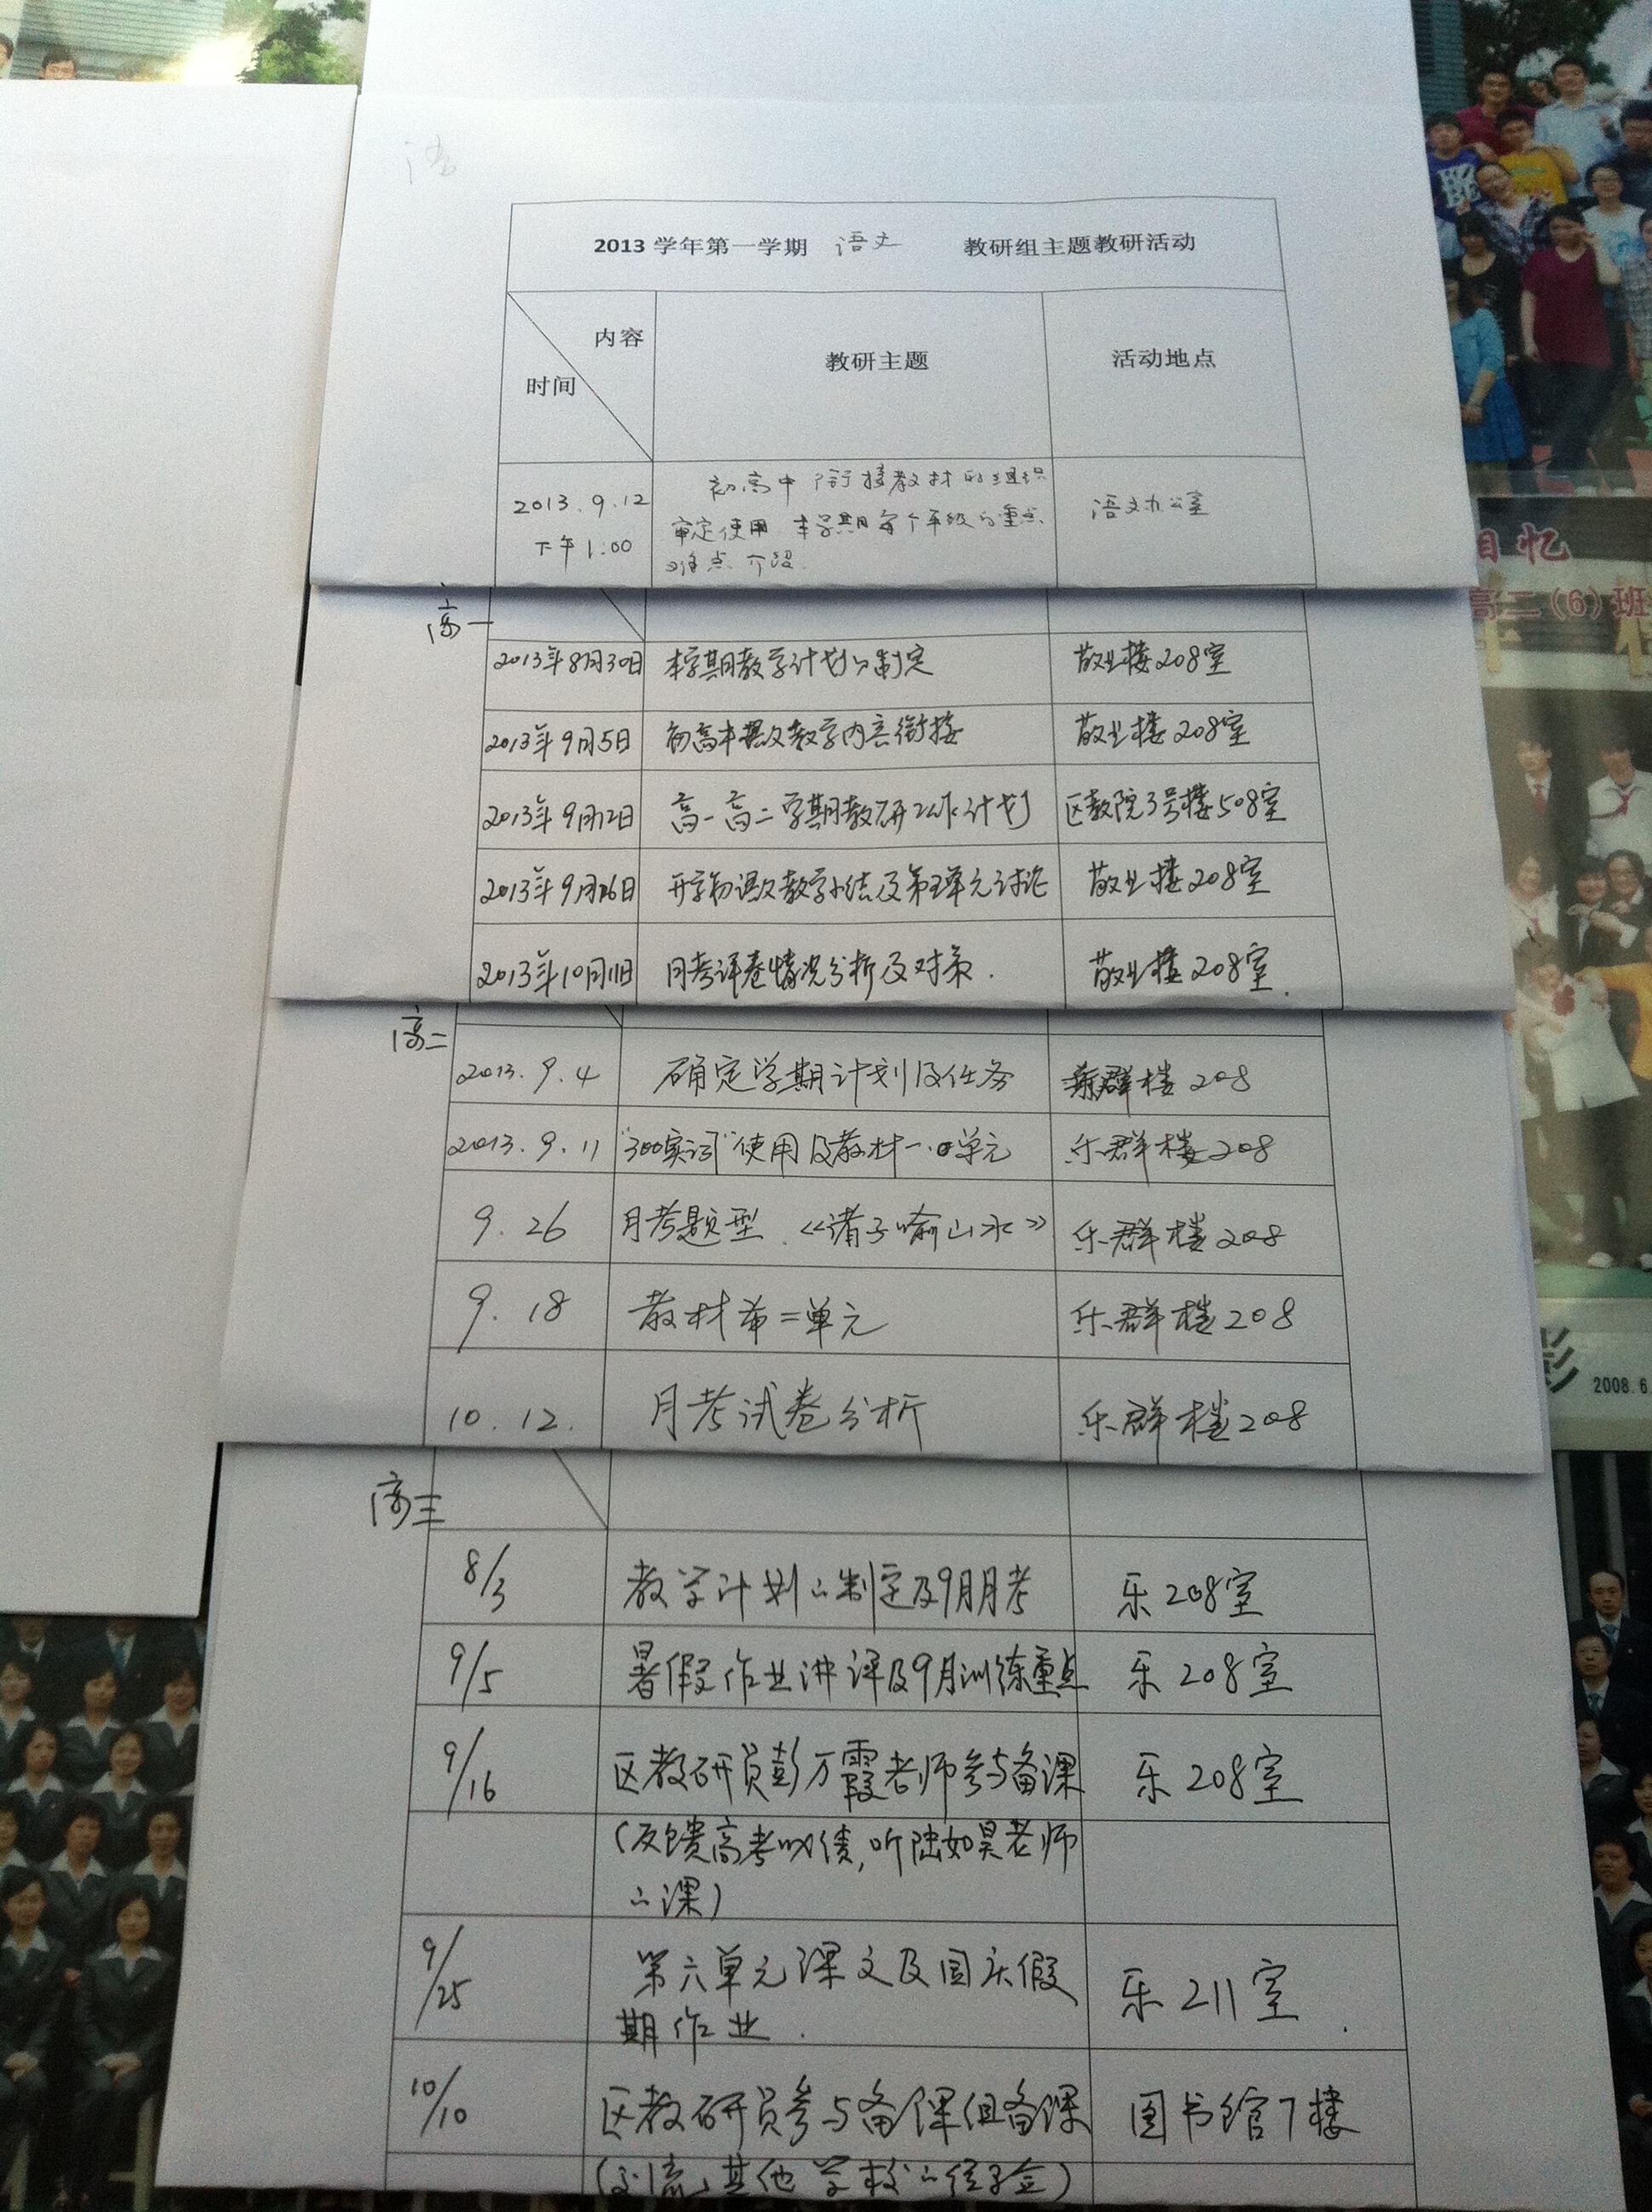 2013 学年第一学期 语文 教研组主题教研活动
内容
时间
教研主题
活动地点
2013.9.12
下午1:00
初高中衔接教材的组织
审定使用 本学期每个年级的重点
难点介绍
语文办公室
高一
2013年8月30日 本学期教学计划的制定 敬业楼208室
2013年9月5日 初高中语文教学内容衔接 敬业楼208室
2013年9月12日 高一高二学期教研工作计划 区教院3号楼508室
2013年9月26日 开学初语文教学小结及第三单元讨论 敬业楼208室
2013年10月11日 月考评卷情况分析及对策. 敬业楼208室.
高二
2013.9.4 确定学期计划及任务 乐群楼208
2013.9.11 "300实词"使用及教材一单元 乐群楼208
9.26 月考题型.《诸子喻山水》 乐群楼208
9.18 教材第二单元 乐群楼208
10.12. 月考试卷分析 乐群楼208
高三
8/3 教学计划的制定及9月月考 乐208室
9/5 暑假作业讲评及9月训练重点 乐208室
9/16 区教研员彭万霞老师参与备课 乐208室
(反馈高考成绩,听陆如昊老师
的课)
9/25 第六单元课文及国庆假 乐211室.
期作业.
10/10 区教研员参与备课组备课 图书馆7楼
(交流其他学校的经验)
相忆
高二(6)班
影
2008.6